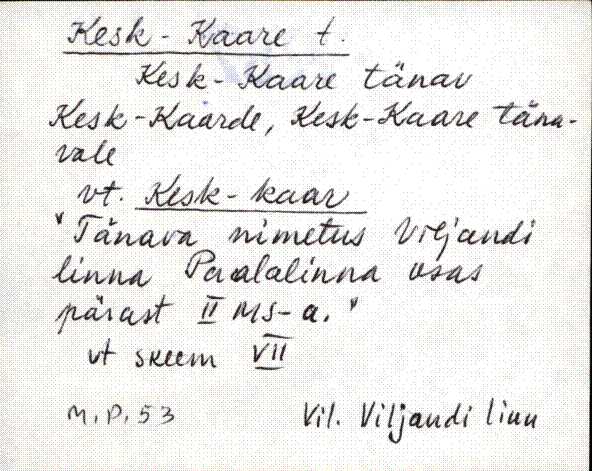 Kesk-Kaare t.
Kesk-Kaare tänav
Kesk-Kaarde, Kesk-Kaare täna-
vale
vt. Kesk-kaar
"Tänava nimetus Viljandi
linna Paalalinna osas
pärast II MS-a."
vt skeem VII
M.P. 53 Vil. Viljandi linn